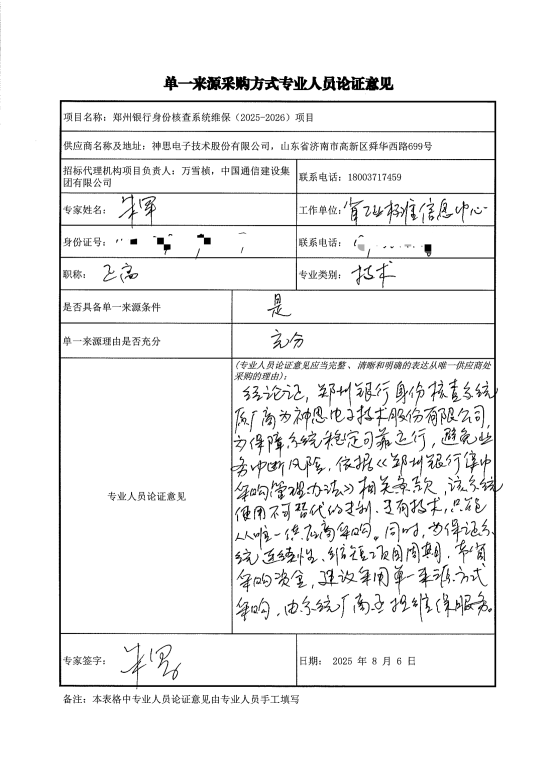 单一来源采购方式专业人员论证意见
项目名称：郑州银行身份核查系统维保（2025-2026）项目
供应商名称及地址：神思电子技术股份有限公司，山东省济南市高新区舜华西路699号
招标代理机构项目负责人：万雪桢，中国通信建设集团有限公司
联系电话：18003717459
专家姓名：
工作单位：省工业标准信息中心
身份证号：
联系电话：
职称：正高
专业类别：技术
是否具备单一来源条件
是
单一来源理由是否充分
充分
专业人员论证意见
（专业人员论证意见应当完整、清晰和明确的表达从唯一供应商处
采购的理由）：
经论证，郑州银行身份核查系统
原厂商为神思电子技术股份有限公司，
为保障系统稳定可靠运行，避免业
务中断风险，依据《郑州银行集中
采购管理办法》相关条款，该系统
使用不可替代的专利、专有技术，只能
从唯一供应商采购。同时，为保证系
统连续性、缩短项目周期、节省
采购资金，建议采用单一来源方式
采购，由系统厂商承担维保服务。
专家签字：
日期： 2025 年 8 月 6 日
备注：本表格中专业人员论证意见由专业人员手工填写